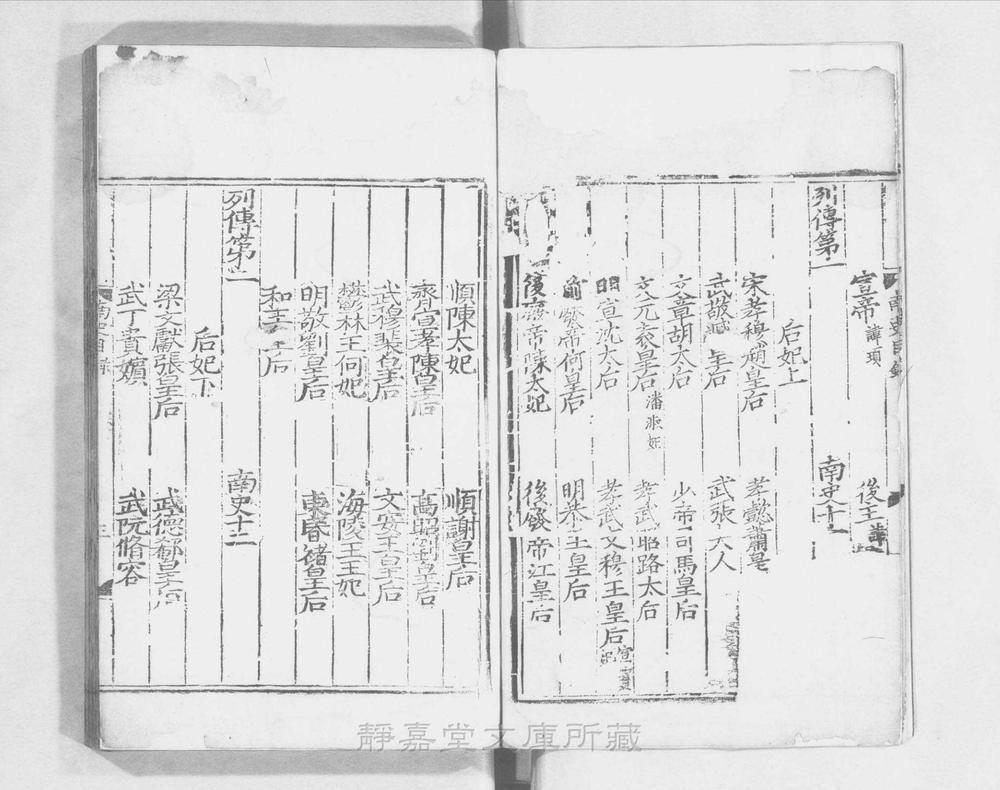 宣帝 諱頊 後主
列傳第一 南史十一
后妃上
宋孝穆趙皇后 孝懿蕭皇
武敬臧皇后 武張夫人
文章胡太后 少帝司馬皇后
文元袁皇后 潘淑妃 孝武昭路太后
明宣沈太后 孝武文穆王皇后 宣
前廢帝何皇后 明恭王皇后
後廢帝陳太妃 後廢帝江皇后
順陳太妃 順謝皇后
齊宣孝陳皇后 高昭劉皇后
武穆裴皇后 文安王皇后
鬱林王何妃 海陵王王妃
明敬劉皇后 東昏褚皇后
和王皇后
列傳第二 南史十二
后妃下
梁文獻張皇后 武德郗皇后
武丁貴嬪 武阮脩容
南史目錄
三
靜嘉堂文庫所藏